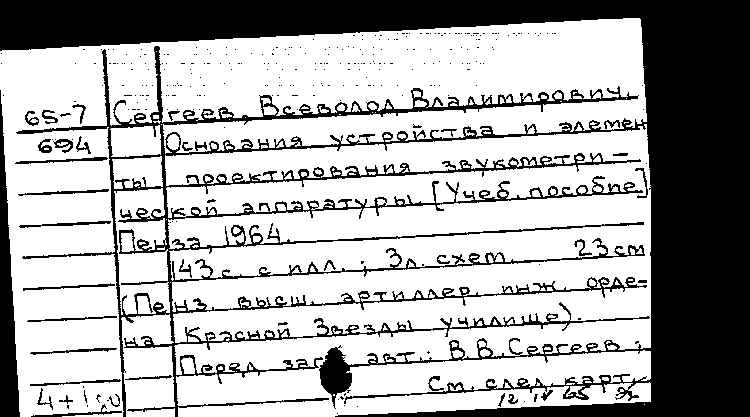 65-7 Сергеев, Всеволод Владимирович.
694 Основания устройства и элемен
ты проектирования звукометри-
ческой аппаратуры. [Учеб. пособие]
Пенза, 1964.
143 с. с илл.; 3 л. схем. 23 см
(Пенз. высш. артиллер. инж. орде-
на Красной Звезды училище).
Перед загл. авт.: В.В. Сергеев;
См. след. карт.
12 IV 65